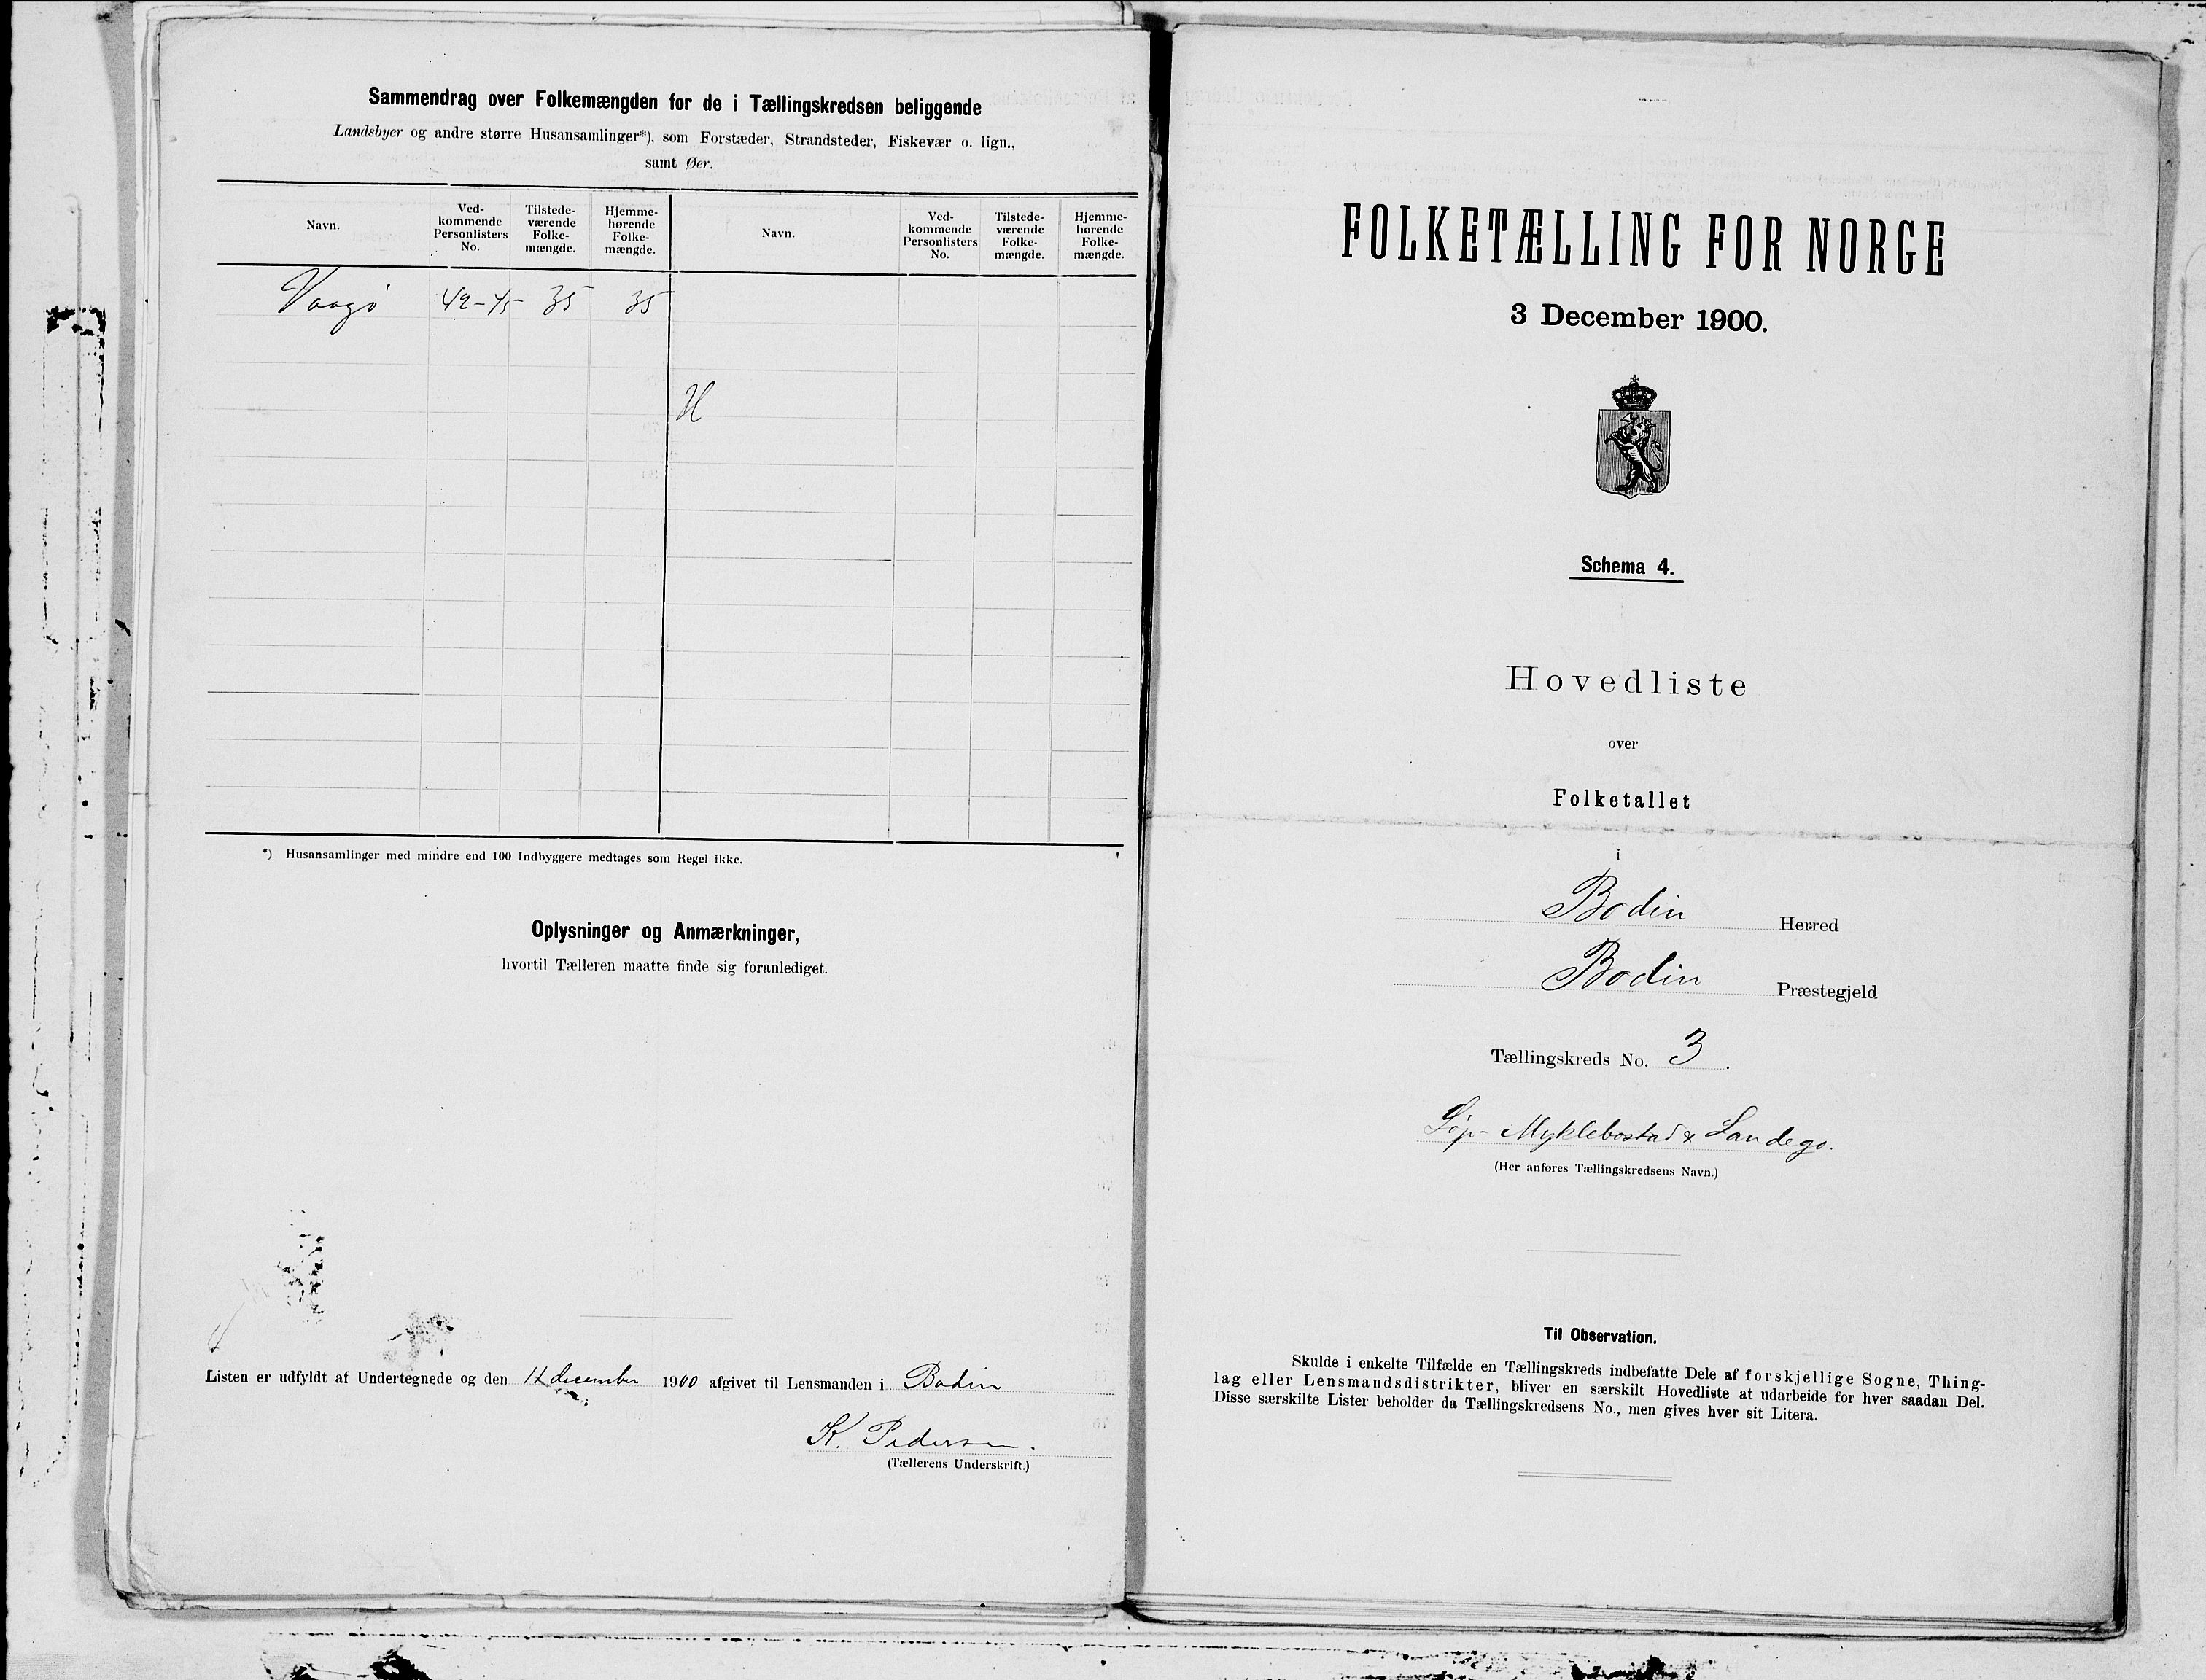 Sammendrag over Folkemængden for de i Tællingskredsen beliggende
Landsbyer og andre større Husansamlinger*), som Forstæder, Strandsteder, Fiskevær o. lign.,
samt Øer.
Navn. Ved-kommende Personlisters No. Tilstede-værende Folke-mængde. Hjemme-hørende Folke-mængde. Navn. Ved-kommende Personlisters No. Tilstede-værende Folke-mængde. Hjemme-hørende Folke-mængde.
Vaagø 42-45 35 35
H
*) Husansamlinger med mindre end 100 Indbyggere medtages som Regel ikke.
Oplysninger og Anmærkninger,
hvortil Tælleren maatte finde sig foranlediget.
Listen er udfyldt af Undertegnede og den december 1900 afgivet til Lensmanden i Bodin
K. Pedersen.
(Tællerens Underskrift.)
FOLKETÆLLING FOR NORGE
3 December 1900.
Schema 4.
Hovedliste
over
Folketallet
i
Bodin Herred
Bodin Præstegjeld
Tællingskreds No. 3.
Løp- Myklebostad & Landego.
(Her anføres Tællingskredsens Navn.)
Til Observation.
Skulde i enkelte Tilfælde en Tællingskreds indbefatte Dele af forskjellige Sogne, Thing-
lag eller Lensmandsdistrikter, bliver en særskilt Hovedliste at udarbeide for hver saadan Del.
Disse særskilte Lister beholder da Tællingskredsens No., men gives hver sit Litera.